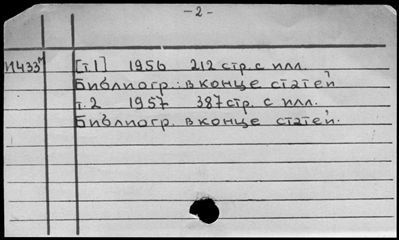 -2-
И433м [т.1] 1956 212 стр. с илл.
Библиогр.: в конце статей
т.2 1957 387 стр. с илл.
Библиогр. в конце статей.